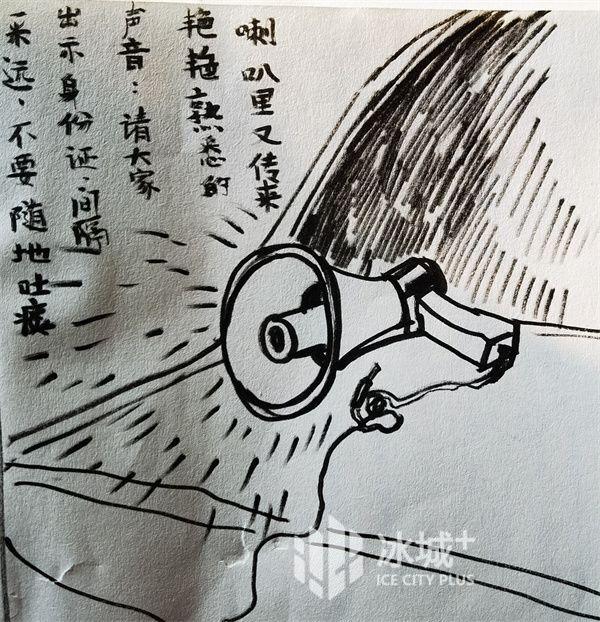 喇叭里又传来
艳艳熟悉的
声音：请大家
出示身份证，间隔
一米远，不要随地吐痰
冰城+
ICE CITY PLUS